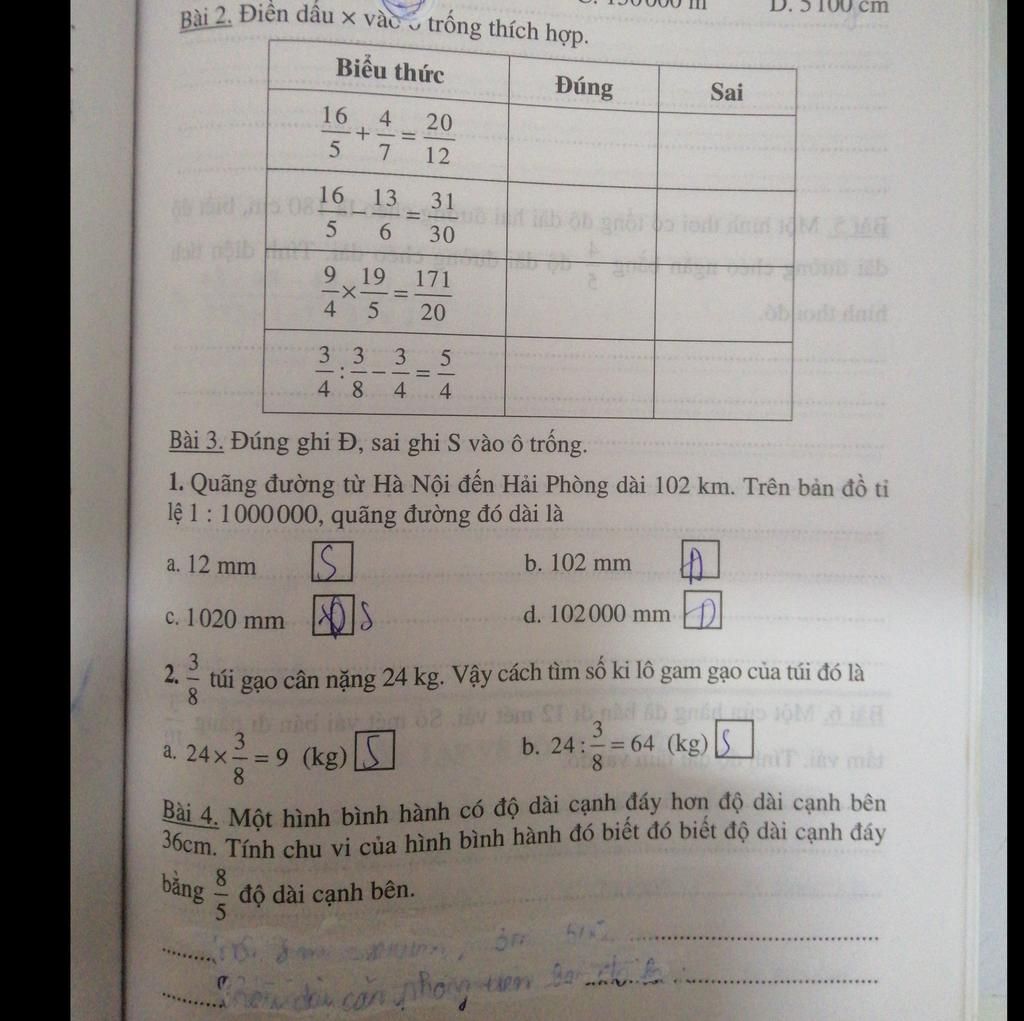 D. 5100 cm
Bài 2. Điền dấu × vào ô trống thích hợp.
Biểu thức Đúng Sai
16/5 + 4/7 = 20/12
16/5 − 13/6 = 31/30
9/4 × 19/5 = 171/20
3/4 : 3/8 − 3/4 = 5/4
Bài 3. Đúng ghi Đ, sai ghi S vào ô trống.
1. Quãng đường từ Hà Nội đến Hải Phòng dài 102 km. Trên bản đồ tỉ
lệ 1 : 1000000, quãng đường đó dài là
a. 12 mm S b. 102 mm Đ
c. 1020 mm S d. 102000 mm Đ
2. 3/8 túi gạo cân nặng 24 kg. Vậy cách tìm số ki lô gam gạo của túi đó là
a. 24 × 3/8 = 9 (kg) S b. 24 : 3/8 = 64 (kg) S
Bài 4. Một hình bình hành có độ dài cạnh đáy hơn độ dài cạnh bên
36cm. Tính chu vi của hình bình hành đó biết đó biết độ dài cạnh đáy
bằng 8/5 độ dài cạnh bên.